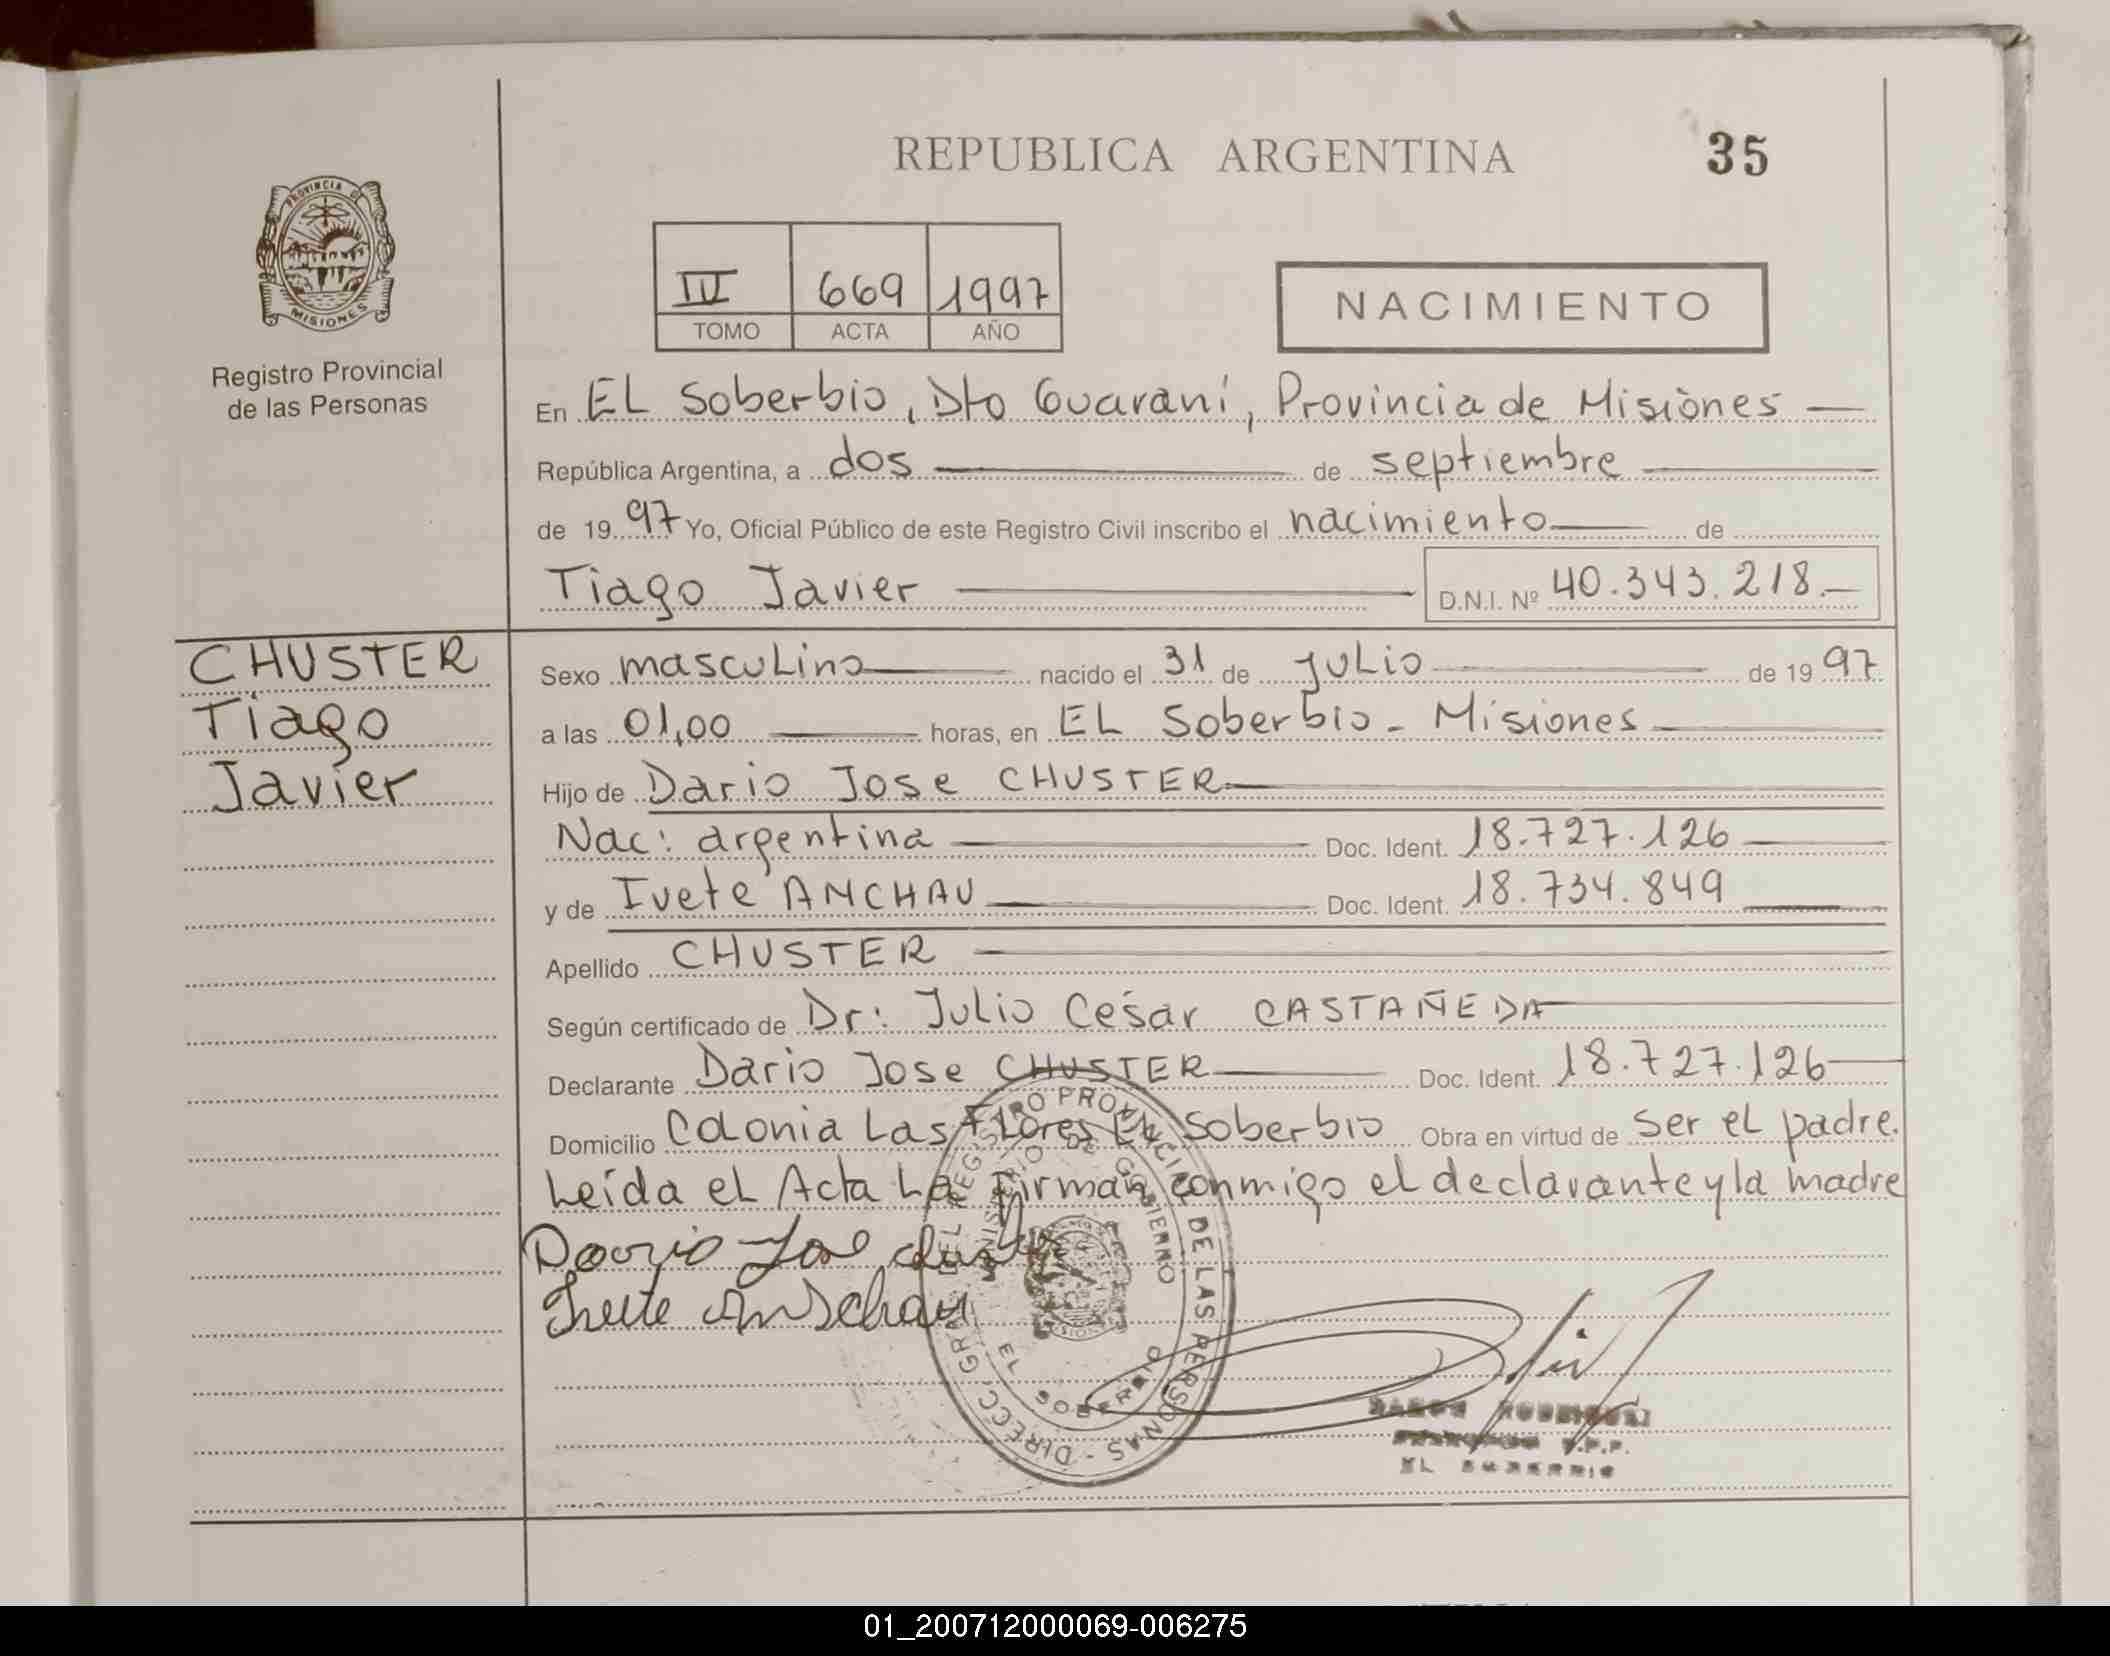 REPUBLICA ARGENTINA
35
PROVINCIA DE
MISIONES
Registro Provincial
de las Personas
IV 669 1997
TOMO ACTA AÑO
NACIMIENTO
En EL Soberbio, Dto Guaraní, Provincia de Misiones
República Argentina, a dos de septiembre
de 1997 Yo, Oficial Público de este Registro Civil inscribo el nacimiento de
Tiago Javier D.N.I. Nº 40.343.218.-
CHUSTER
Tiago
Javier
Sexo masculino nacido el 31 de julio de 1997
a las 01,00 horas, en EL Soberbio - Misiones
Hijo de Dario Jose CHUSTER
Nac: argentina Doc. Ident. 18.727.126
y de Ivete ANCHAU Doc. Ident. 18.734.849
Apellido CHUSTER
Según certificado de Dr: Julio César CASTAÑEDA
Declarante Dario Jose CHUSTER Doc. Ident. 18.727.126
Domicilio Colonia Las Flores EL Soberbio Obra en virtud de ser el padre.
Leída el Acta La firman conmigo el declarante y la madre
Dario Jose
Ivete
DIRECC. GRAL. DEL REGISTRO PROVINCIAL DE LAS PERSONAS -
MINISTERIO DE GOBIERNO
EL SOBERBIO
EL SOBERBIO
01_200712000069-006275